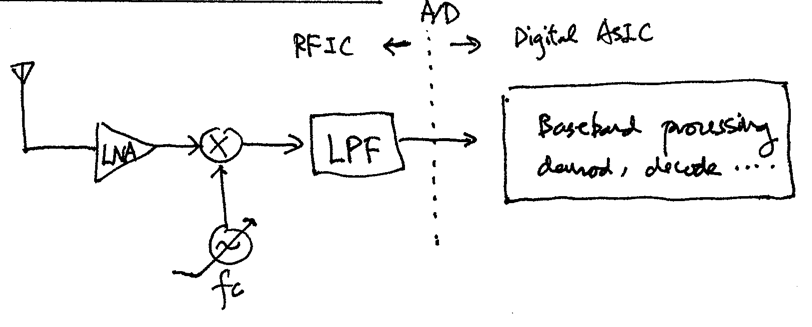 A/D
RFIC ← → Digital ASIC
LNA
X
LPF
Baseband processing
demod, decode ....
~
fc